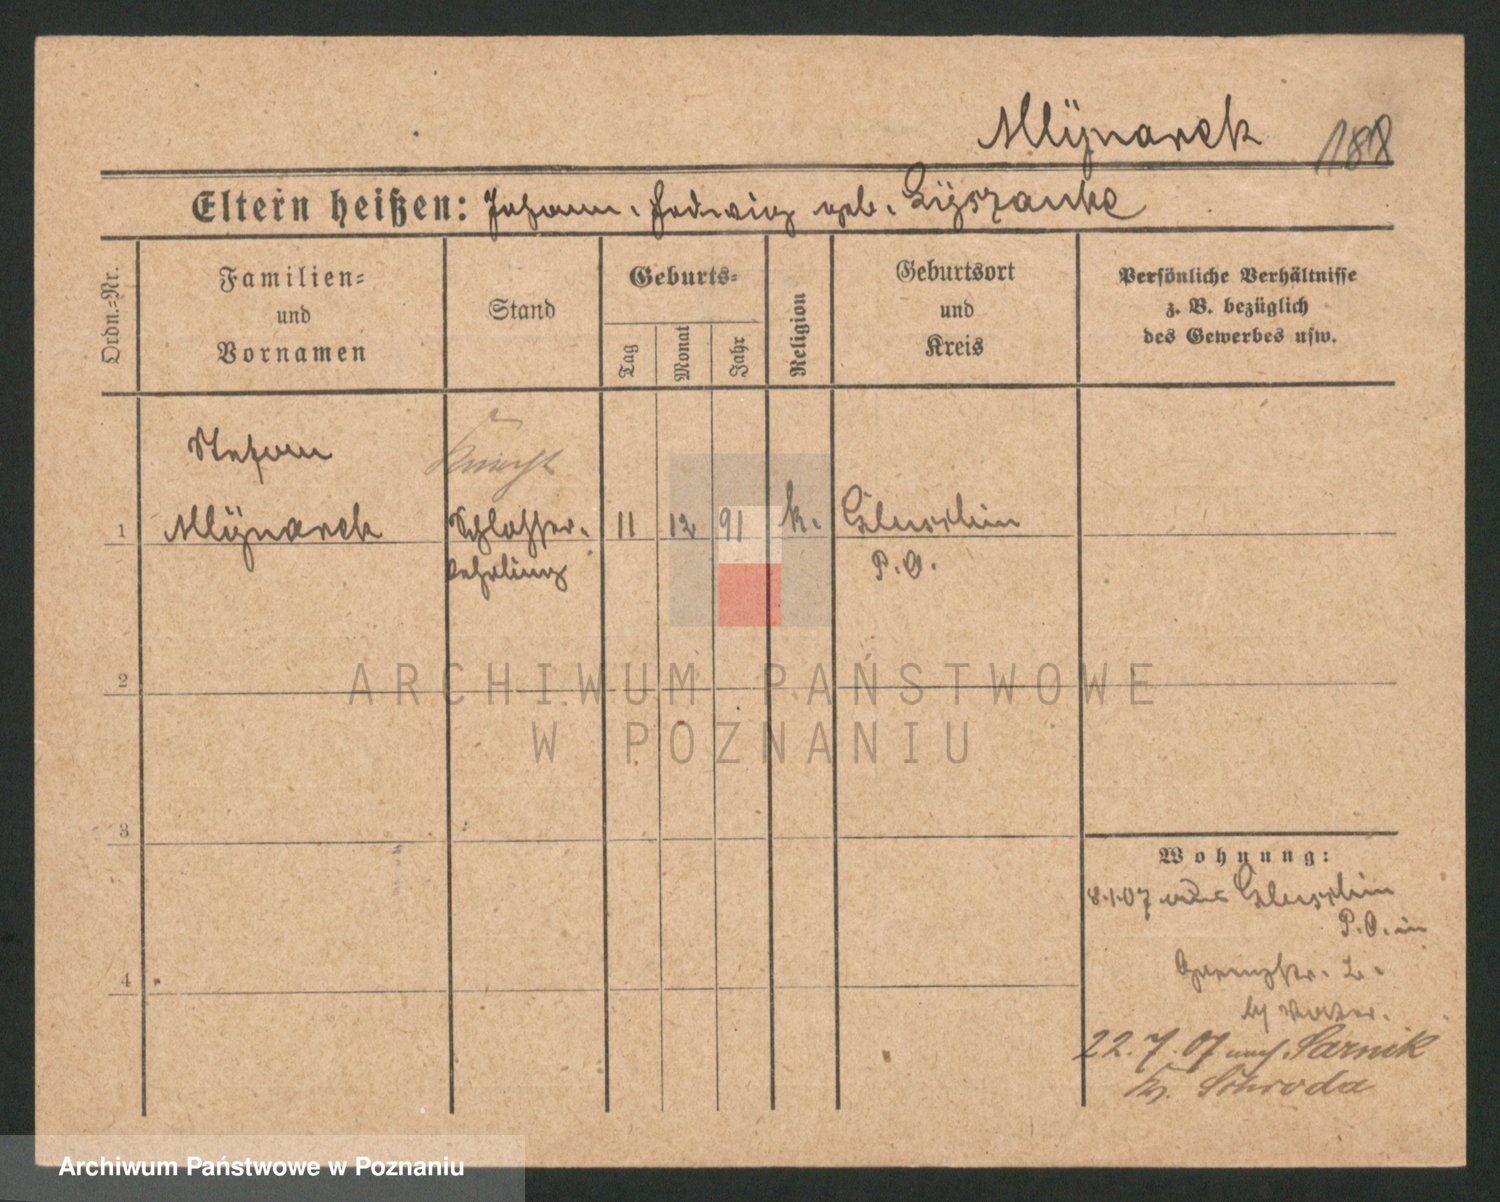 Mlÿnarek 188
Eltern heißen: Johann. Hedwig geb. Lÿszanke
Ordn.-Nr.
Familien-
und
Vornamen
Stand
Geburts-
Tag
Monat
Jahr
Religion
Geburtsort
und
Kreis
Persönliche Verhältnisse
z. B. bezüglich
des Gewerbes usw.
Stefan
Knecht
1 Mlÿnarek Schlosser- 11 12 91 k. Gluschin
Lehrling P.O.
2
3
4
Wohnung:
8.1.07 aus Gluschin
P.O. in
Grenzstr. 2.
b/ Vater.
22.7.07 nach Sarnik
Kr. Schroda
ARCHIWUM PAŃSTWOWE
W POZNANIU
Archiwum Państwowe w Poznaniu